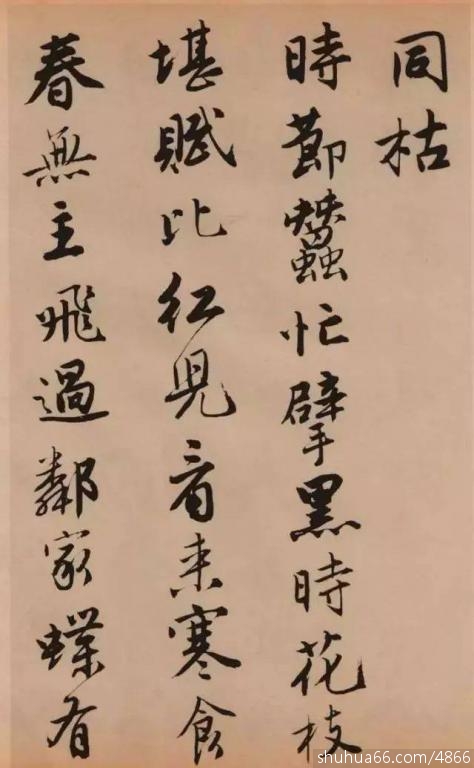 同枯
時節蠶忙擘黑時花枝
堪賦比紅兒看来寒食
春無主飛過鄰家蝶有
shuhua66.com/4866